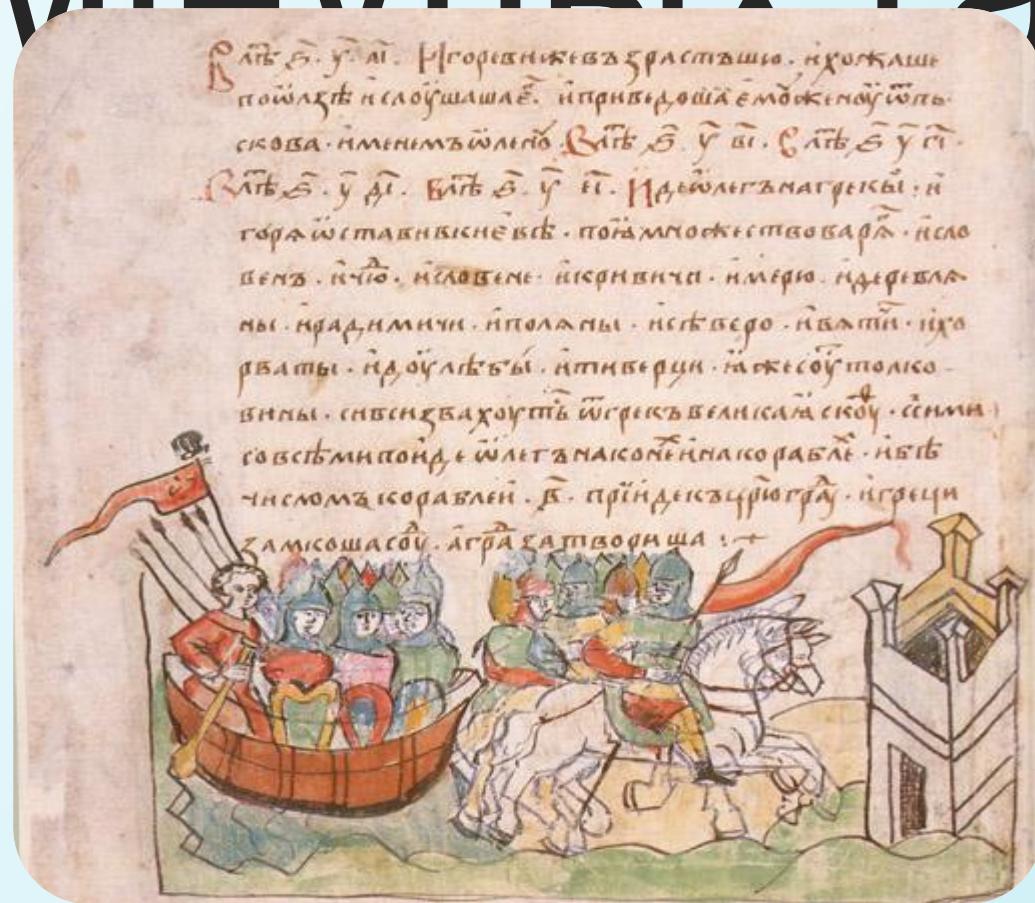 В лѣⷮ ҂ѕ҃ . у҃ . а҃і . Игореви же възрастъшю . и хожаше
по ѡлзѣ и слоушаша е҃ . и приведоша емоу женоу ѿ пь
скова . именемъ ѡлено . В лѣⷮ ҂ѕ҃ . у҃ в҃і . В лѣⷮ ҂ѕ҃ у҃ г҃і .
В лѣⷮ ҂ѕ҃ . у҃ д҃і . В лѣⷮ ҂ѕ҃ . у҃ е҃і . Иде ѡлегъ на грекы . и
горѧ ѡставив киевѣ . поꙗ множество варѧ . и сло
венъ . и чю . и словене . и кривичи . и мерю . и деревлѧ
ны . и радимичи . и полѧны . и сѣверо . и вѧтичи . и хо
рваты . и доулѣбы . и тиверци . ꙗже соуⷮ толко
вины . си вси звахоутьⷭ ѿ грекъ великаꙗ скоуⷴ . с сими
со всѣми поиде ѡлегъ на конеⷯ и на кораблеⷯ . и бѣ
числомъ кораблеи . в҃ . прїиде къ цр҃ю граⷣ . и греци
замкоша соуⷣ . а граⷣ затвориша :